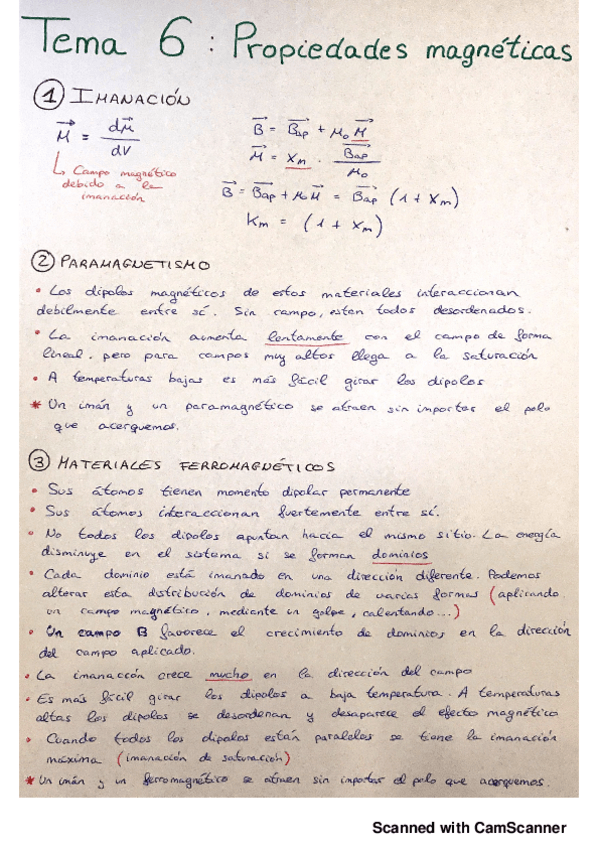 Tema 6 : Propiedades magnéticas
① IMANACIÓN
M⃗ = dμ⃗ / dV
↳ Campo magnético
debido a la
imanación
B⃗ = B⃗ap + μ₀ M⃗
M⃗ = Xm · B⃗ap / μ₀
B⃗ = B⃗ap + μ₀ M⃗ = B⃗ap (1 + Xm)
Km = (1 + Xm)
② PARAMAGNETISMO
• Los dipolos magnéticos de estos materiales interaccionan
debilmente entre sí. Sin campo, estan todos desordenados.
• La imanación aumenta lentamente con el campo de forma
lineal, pero para campos muy altos llega a la saturación
• A temperaturas bajas es más fácil girar los dipolos
* Un imán y un paramagnético se atraen sin importar el polo
que acerquemos.
③ MATERIALES FERROMAGNÉTICOS
• Sus átomos tienen momento dipolar permanente
• Sus átomos interaccionan fuertemente entre sí.
• No todos los dipolos apuntan hacia el mismo sitio. La energía
disminuye en el sistema si se forman dominios
• Cada dominio está imanado en una dirección diferente. Podemos
alterar esta distribución de dominios de varias formas (aplicando
un campo magnético, mediante un golpe, calentando...)
• Un campo B favorece el crecimiento de dominios en la dirección
del campo aplicado.
• La imanaccón crece mucho en la dirección del campo
• Es más fácil girar los dipolos a baja temperatura. A temperaturas
altas los dipolos se desordenan y desaparece el efecto magnético
• Cuando todos los dipolos están paralelos se tiene la imanación
máxima (imanación de saturación)
* Un imán y un ferromagnético se atraen sin importar el polo que acerquemos.
Scanned with CamScanner